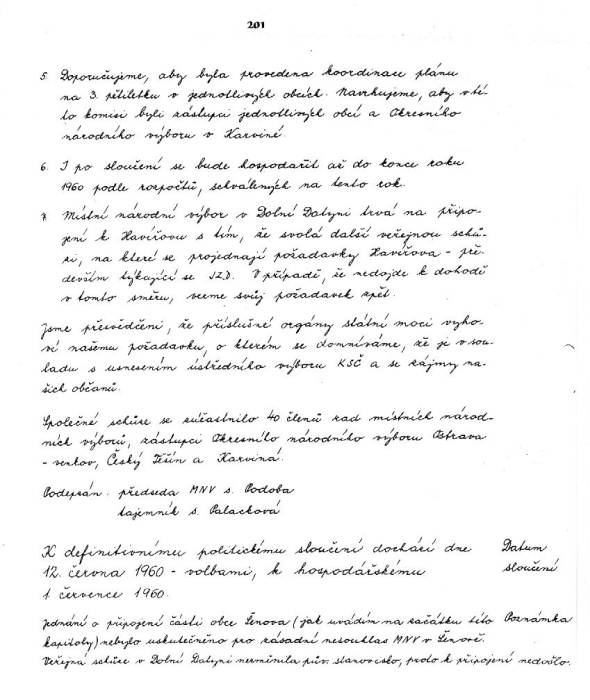 201
5. Doporučujeme, aby byla provedena koordinace plánu
na 3. pětiletku v jednotlivých obcích. Navrhujeme, aby v té-
to komisi byli zástupci jednotlivých obcí a Okresního
národního výboru v Karviné.
6. I po sloučení se bude hospodařit až do konce roku
1960 podle rozpočtů, schválených na tento rok.
7. Místní národní výbor v Dolní Datyni trvá na připo-
jení k Havířovu s tím, že svolá další veřejnou schů-
zi, na které se projednají požadavky Havířova - pře-
devším týkající se JZD. V případě, že nedojde k dohodě
v tomto směru, vezme svůj požadavek zpět.
Jsme přesvědčeni, že příslušné orgány státní moci vyho-
ví našemu požadavku, o kterém se domníváme, že je v sou-
ladu s usnesením ústředního výboru KSČ a se zájmy na-
šich občanů.
Společné schůze se zúčastnilo 40 členů rad místních národ-
ních výborů, zástupci Okresního národního výboru Ostrava
- venkov, Český Těšín a Karviná.
Podepsán: předseda MNV s. Podoba
tajemník s. Palacková
K definitivnímu politickému sloučení dochází dne Datum
12. června 1960 - volbami, k hospodářskému sloučení
1. července 1960.
Jednání o připojení části obce Šenova (jak uvádím na začátku této Poznámka
kapitoly) nebylo uskutečněno pro zásadní nesouhlas MNV v Šenově.
Veřejná schůze v Dolní Datyni nezměnila pův. stanovisko, proto k připojení nedošlo.